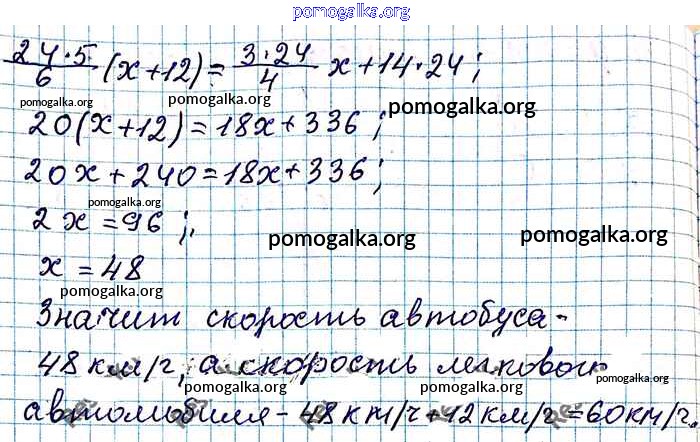 pomogalka.org
24·5/6 (x+12) = 3·24/4 x + 14·24;
pomogalka.org pomogalka.org pomogalka.org
20(x+12) = 18x + 336;
20x + 240 = 18x + 336;
pomogalka.org
2x = 96;
pomogalka.org pomogalka.org
x = 48
pomogalka.org
Значит скорость автобуса -
48 км/г, а скорость легкового
pomogalka.org pomogalka.org pomogalka.org
автомобиля - 48 км/ч + 12 км/г = 60 км/г.